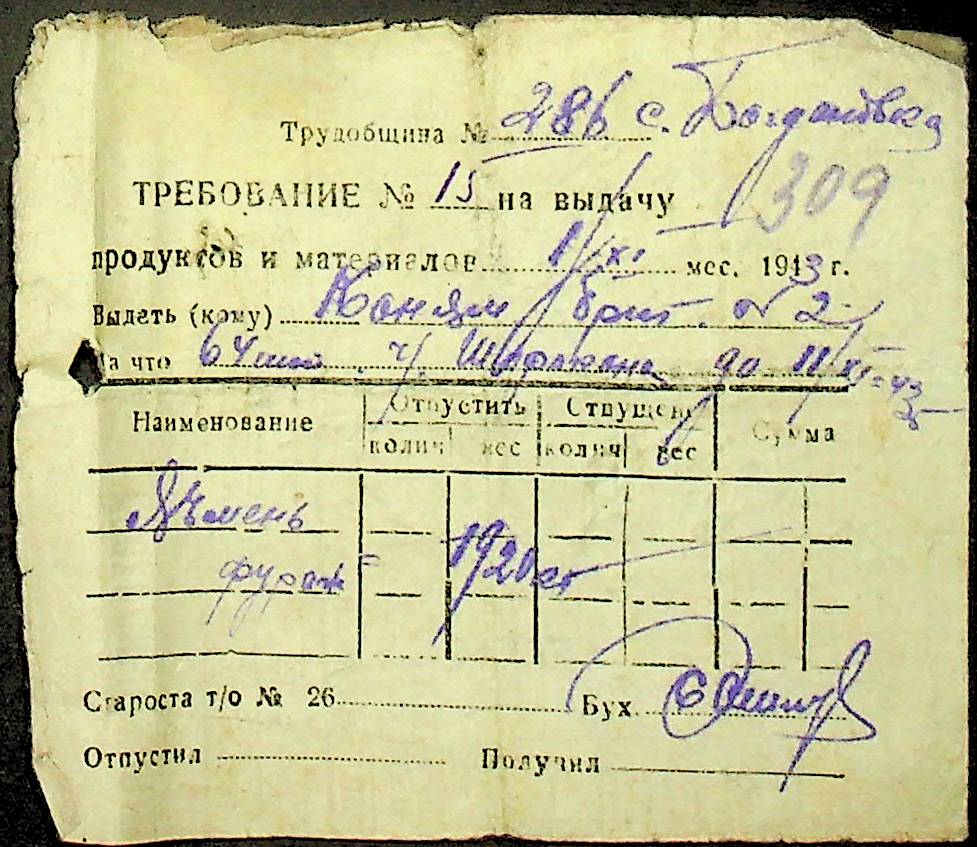 Трудобщина № 286 с. Богдановка
309
ТРЕБОВАНИЕ № 15 на выдачу
продуктов и материалов 1/XI мес. 1943 г.
Выдать (кому) Коням бриг. № 2
На что 64 до 11/XI-43
Наименование Отпустить Отпущено Сумма
колич вес колич вес
Ячмень
фураж 1920 кг
Староста т/о № 26 Бух.
Отпустил Получил